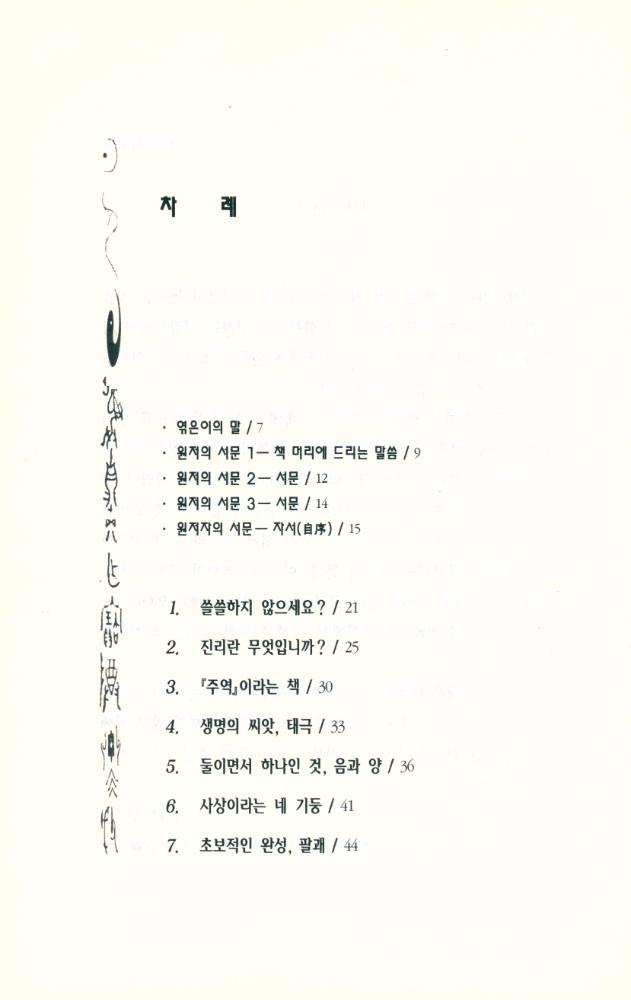 차 레
· 엮은이의 말 / 7
· 원저의 서문 1 — 책 머리에 드리는 말씀 / 9
· 원저의 서문 2 — 서문 / 12
· 원저의 서문 3 — 서문 / 14
· 원저자의 서문 — 자서(自序) / 15
1. 쓸쓸하지 않으세요? / 21
2. 진리란 무엇입니까? / 25
3. 『주역』이라는 책 / 30
4. 생명의 씨앗, 태극 / 33
5. 둘이면서 하나인 것, 음과 양 / 36
6. 사상이라는 네 기둥 / 41
7. 초보적인 완성, 팔괘 / 44